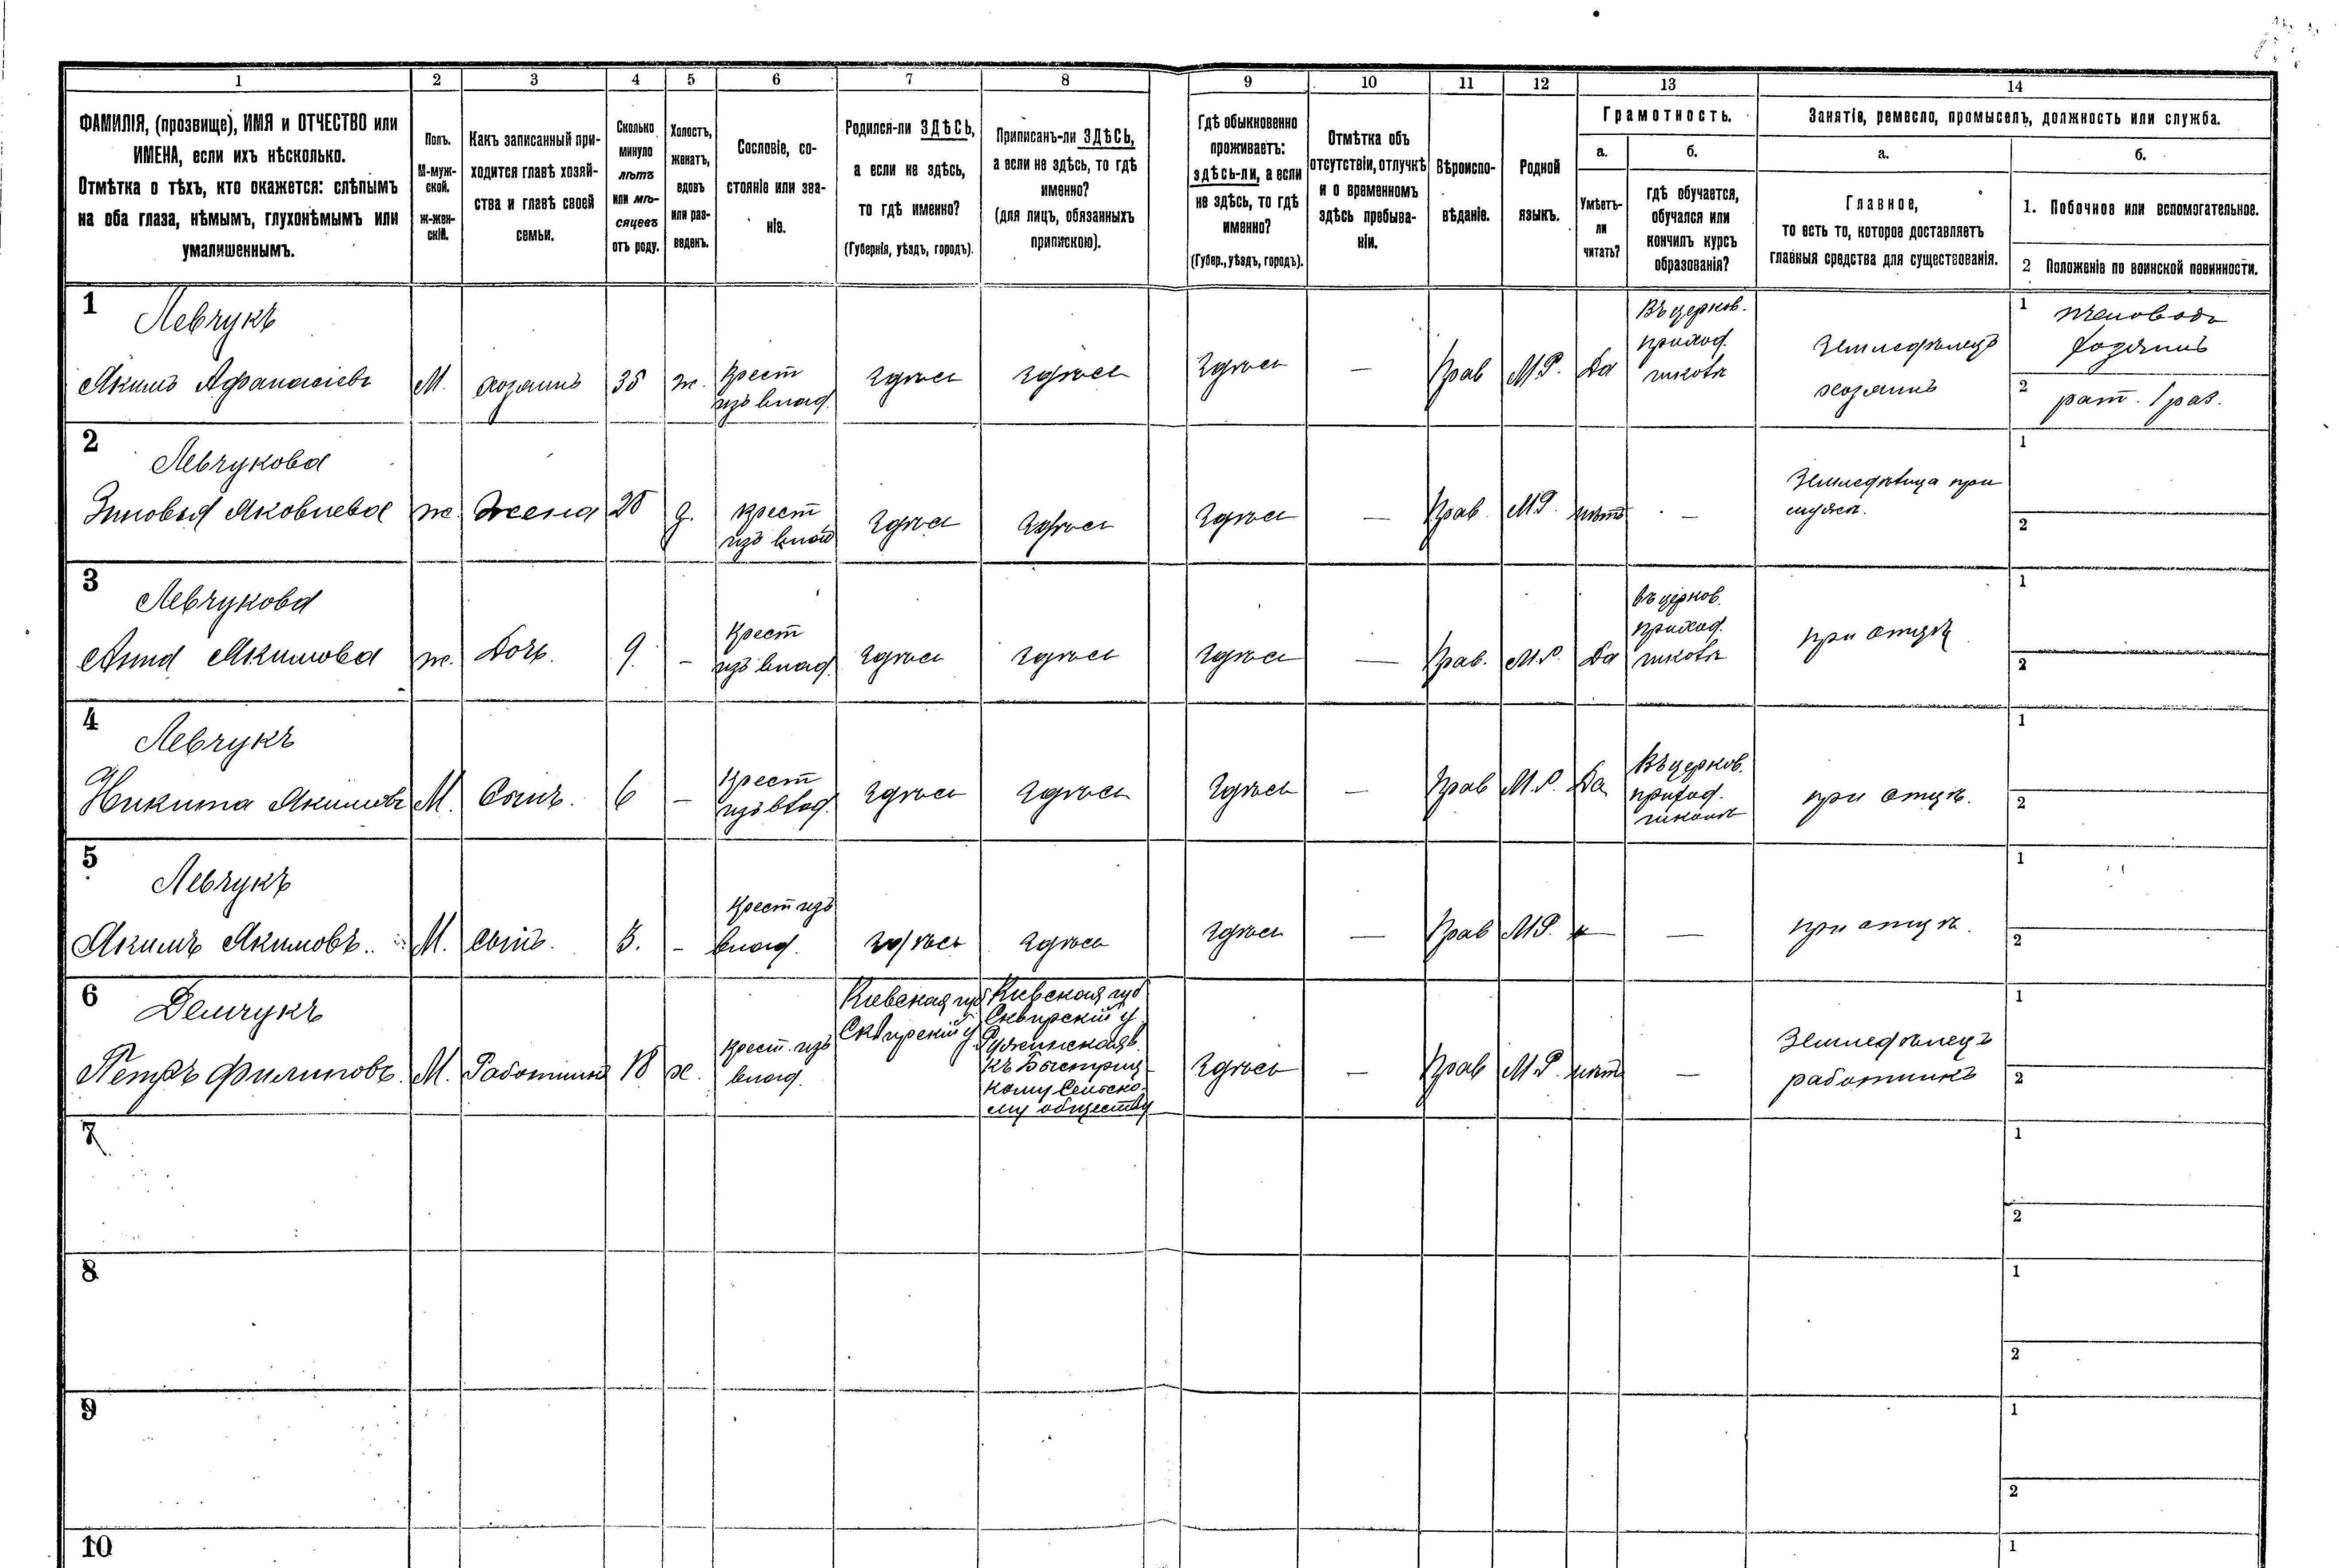 1 2 3 4 5 6 7 8 9 10 11 12 13 14
ФАМИЛІЯ, (прозвище), ИМЯ и ОТЧЕСТВО или
ИМЕНА, если ихъ нѣсколько.
Отмѣтка о тѣхъ, кто окажется: слѣпымъ
на оба глаза, нѣмымъ, глухонѣмымъ или
умалишеннымъ.
Полъ.
М-муж-
ской.
ж-жен-
скій.
Какъ записанный при-
ходится главѣ хозяй-
ства и главѣ своей
семьи.
Сколько
минуло
лѣтъ
или мѣ-
сяцевъ
отъ роду.
Холостъ,
женатъ,
вдовъ
или раз-
веденъ.
Сословіе, со-
стояніе или зва-
ніе.
Родился-ли ЗДѢСЬ,
а если не здѣсь,
то гдѣ именно?
(Губернія, уѣздъ, городъ).
Приписанъ-ли ЗДѢСЬ,
а если не здѣсь, то гдѣ
именно?
(для лицъ, обязанныхъ
припискою).
Гдѣ обыкновенно
проживаетъ:
здѣсь-ли, а если
не здѣсь, то гдѣ
именно?
(Губер., уѣздъ, городъ).
Отмѣтка объ
отсутствіи, отлучкѣ
и о временномъ
здѣсь пребыва-
ніи.
Вѣроиспо-
вѣданіе.
Родной
языкъ.
Грамотность.
а.
Умѣетъ-
ли
читать?
б.
гдѣ обучается,
обучался или
кончилъ курсъ
образованія?
Занятіе, ремесло, промыселъ, должность или служба.
а.
Главное,
то есть то, которое доставляетъ
главныя средства для существованія.
б.
1. Побочное или вспомогательное.
2 Положеніе по воинской повинности.
1
Левчукъ
Якимъ Афанасіевъ
М.
хозяинъ
35
ж.
Крест
изъ влад.
здѣсь
здѣсь
здѣсь
—
Прав
М.Р.
Да
Въ церков.
приход.
школѣ
Земледѣлецъ
хозяинъ
1 пчеловодъ
хозяинъ
2 рат. 1 раз.
2
Левчукова
Зиновья Яковлева
ж.
Жена
28
з.
Крест
изъ влад
здѣсь
здѣсь
здѣсь
—
Прав.
М.Р.
нѣтъ
—
Земледѣлица при
мужѣ.
1
2
3
Левчукова
Анна Якимова
ж.
Дочь.
9.
—
Крест
изъ влад.
здѣсь
здѣсь
здѣсь
—
Прав.
М.Р.
Да
Въ церков.
приход.
школѣ
при отцѣ
1
2
4
Левчукъ
Никита Якимовъ
М.
Сынъ.
6
—
Крест
изъ влад.
здѣсь
здѣсь
здѣсь
—
Прав
М.Р.
Да
Въ церков.
приход.
школѣ
при отцѣ.
1
2
5
Левчукъ
Якимъ Якимовъ.
М.
сынъ.
3.
—
Крест изъ
влад.
здѣсь
здѣсь
здѣсь
—
Прав
М.Р.
—
при отцѣ.
1
2
6
Демчукъ
Петръ Филиповъ.
М.
Работникъ
18
х.
Крест. изъ
влад.
Кіевская губ
Сквирскій у.
Кіевская губ
Сквирскій у
Ружинская в.
къ Быстриц-
кому Сельско-
му обществу
здѣсь
—
Прав
М.Р.
нѣтъ
—
Земледѣлецъ
работникъ
1
2
7
1
2
8
1
2
9
1
2
10
1